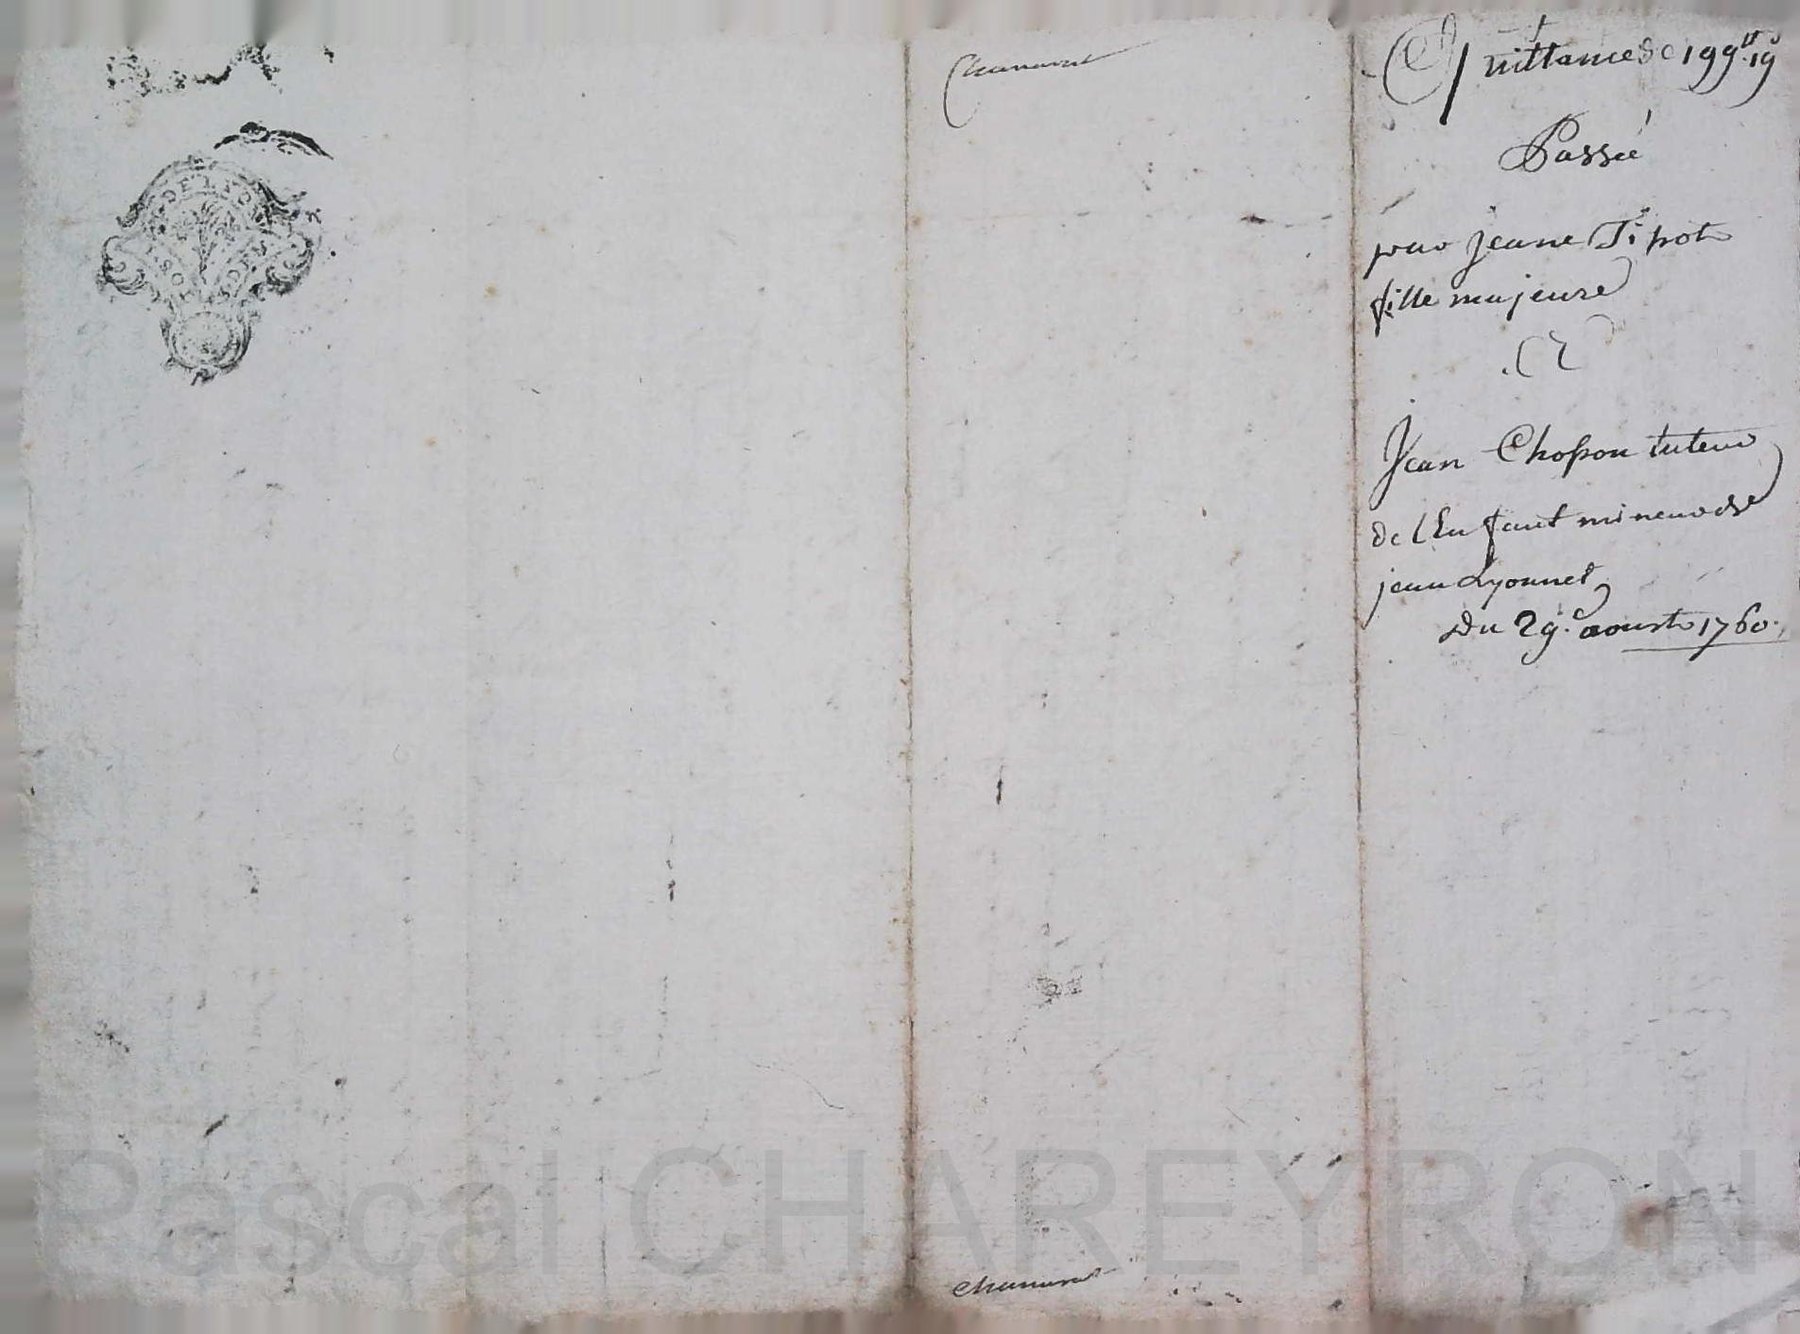 DE LYON
2. SOLS. 8. DEN
Chanavat
Quittance de 199ᵗᵗ 19ˢ
Passée
par jeane Tipot
fille majeure
a
Jean Chosson tuteur
de lEnfant mineur de
jean Lyonnet
Du 29.ᵉ aoust 1760.
Chanavat
Pascal CHAREYRON